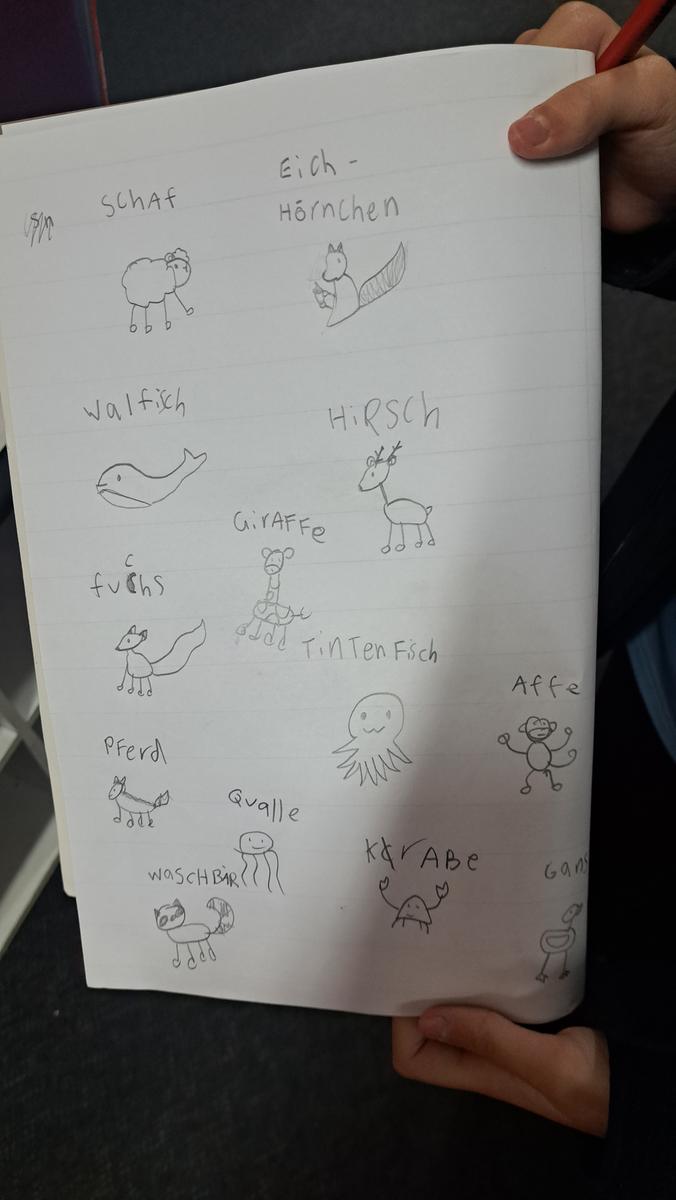 SchAf
Eich -
Hörnchen
Walfisch
HiRSCh
GirAFFe
fuchs
TinTen Fisch
Affe
PFerd
Qualle
KrABe
WASCHBäR
GAns